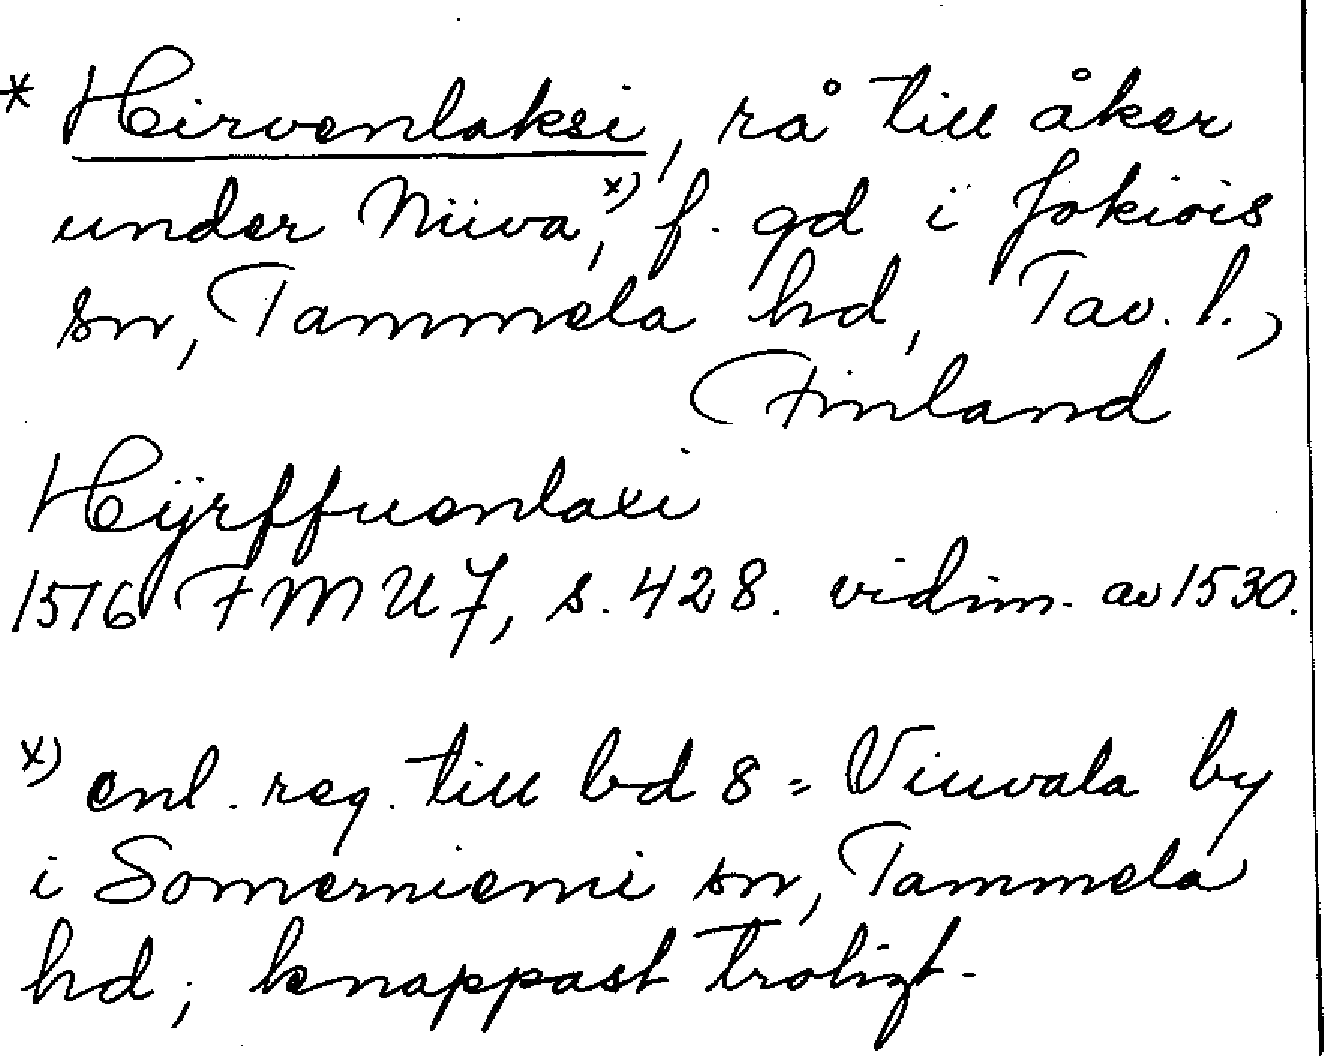 * Hirvenlaksi, rå till åker
under Niuva,x) f. gd i Jokiois
sn, Tammela hd, Tav. l.,
Finland
Hÿrffuenlaxi
1516 FMU 7, s. 428. vidim. av 1530.
x) enl. reg. till bd 8 = Viuvala by
i Somerniemi sn, Tammela
hd; knappast troligt.